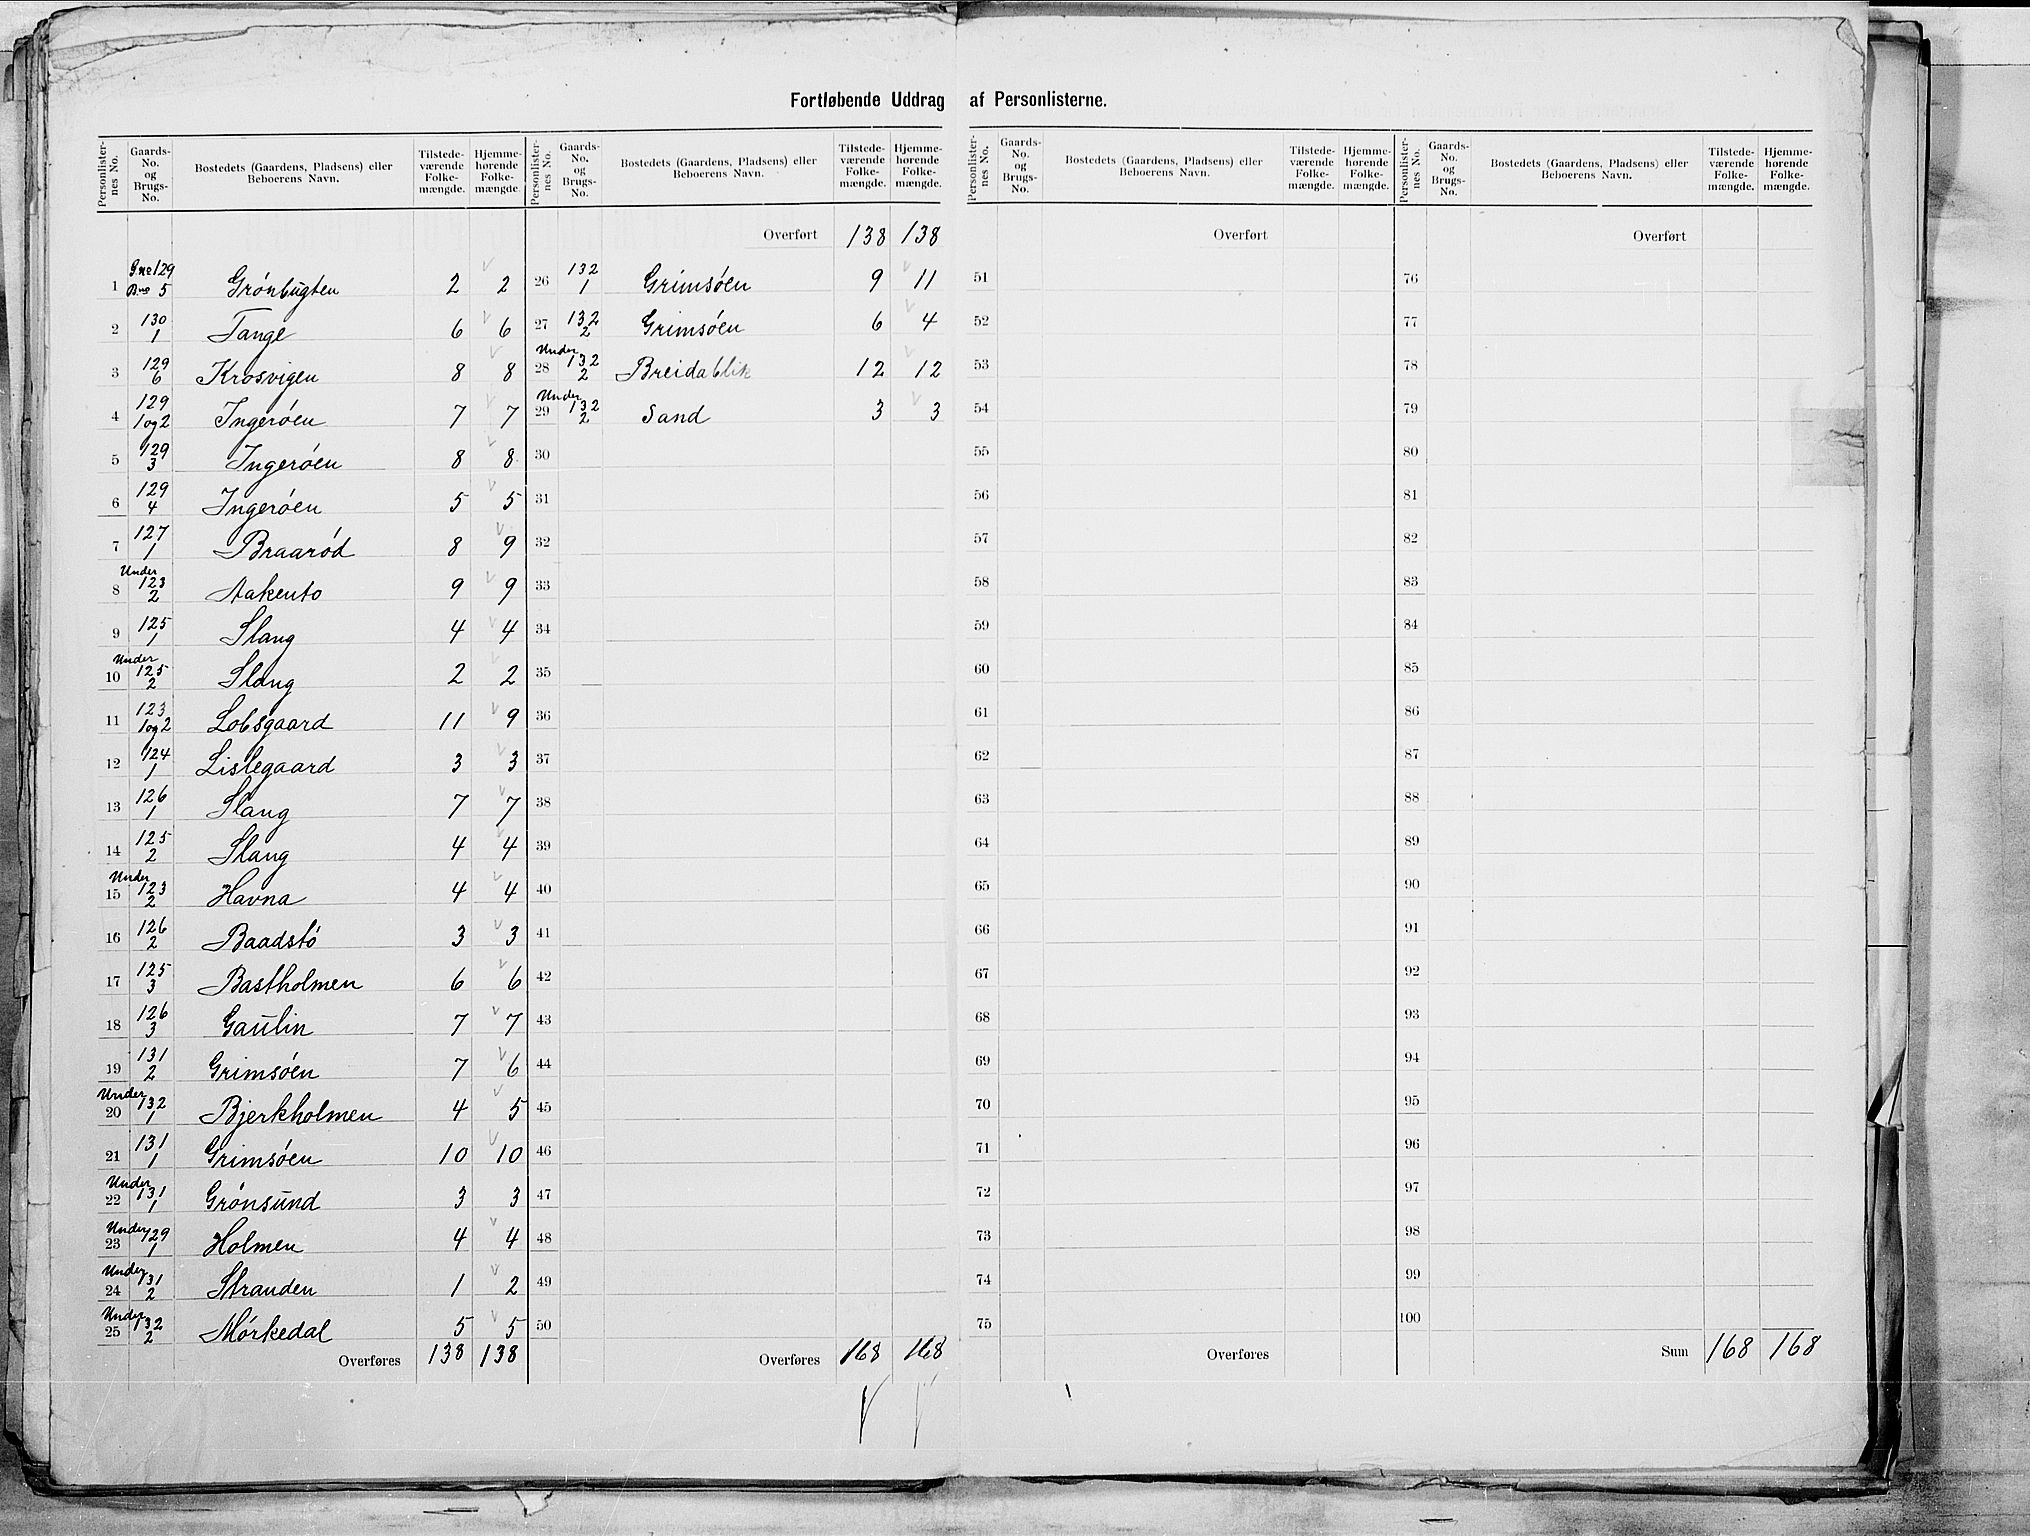 Fortløbende Uddrag af Personlisterne.
Personlisternes No. Gaards-No. og Brugs-No. Bostedets (Gaardens, Pladsens) eller Beboerens Navn. Tilstedeværende Folkemængde. Hjemmehørende Folkemængde.
1 Gno 129 Bno 5 Grönbugten 2 2
2 130 1 Tange 6 6
3 129 6 Krosvigen 8 8
4 129 1og2 Ingeröen 7 7
5 129 3 Ingeröen 8 8
6 129 4 Ingeröen 5 5
7 127 1 Braaröd 8 9
8 Under 123 2 Aakento 9 9
9 125 1 Slang 4 4
10 Under 125 2 Slang 2 2
11 123 1og2 Lobsgaard 11 9
12 124 1 Lislegaard 3 3
13 126 1 Slang 7 7
14 125 2 Slang 4 4
15 Under 123 2 Havna 4 4
16 126 2 Baadstö 3 3
17 125 3 Bastholmen 6 6
18 126 3 Gaulin 7 7
19 131 2 Grimsöen 7 6
20 Under 132 1 Bjerkholmen 4 5
21 131 1 Grimsöen 10 10
22 Under 131 1 Grönsund 3 3
23 Under 129 1 Holmen 4 4
24 Under 131 2 Stranden 1 2
25 Under 132 2 Mörkedal 5 5
Overføres 138 138
Personlisternes No. Gaards-No. og Brugs-No. Bostedets (Gaardens, Pladsens) eller Beboerens Navn. Tilstedeværende Folkemængde. Hjemmehørende Folkemængde.
Overført 138 138
26 132 1 Grimsöen 9 11
27 132 2 Grimsöen 6 4
28 Under 132 2 Breidablik 12 12
29 Under 132 2 Sand 3 3
30
31
32
33
34
35
36
37
38
39
40
41
42
43
44
45
46
47
48
49
50
Overføres 168 168
Personlisternes No. Gaards-No. og Brugs-No. Bostedets (Gaardens, Pladsens) eller Beboerens Navn. Tilstedeværende Folkemængde. Hjemmehørende Folkemængde.
Overført
51
52
53
54
55
56
57
58
59
60
61
62
63
64
65
66
67
68
69
70
71
72
73
74
75
Overføres
Personlisternes No. Gaards-No. og Brugs-No. Bostedets (Gaardens, Pladsens) eller Beboerens Navn. Tilstedeværende Folkemængde. Hjemmehørende Folkemængde.
Overført
76
77
78
79
80
81
82
83
84
85
86
87
88
89
90
91
92
93
94
95
96
97
98
99
100
Sum 168 168